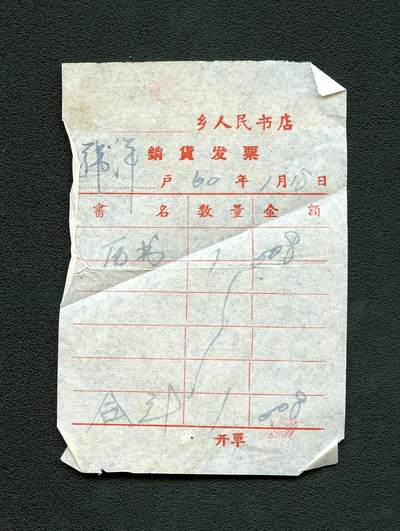 乡人民书店
銷貨发票
戶 60 年 1 月 18 日
書名 数量 金額
历书 1 008
合計 1 008
开單